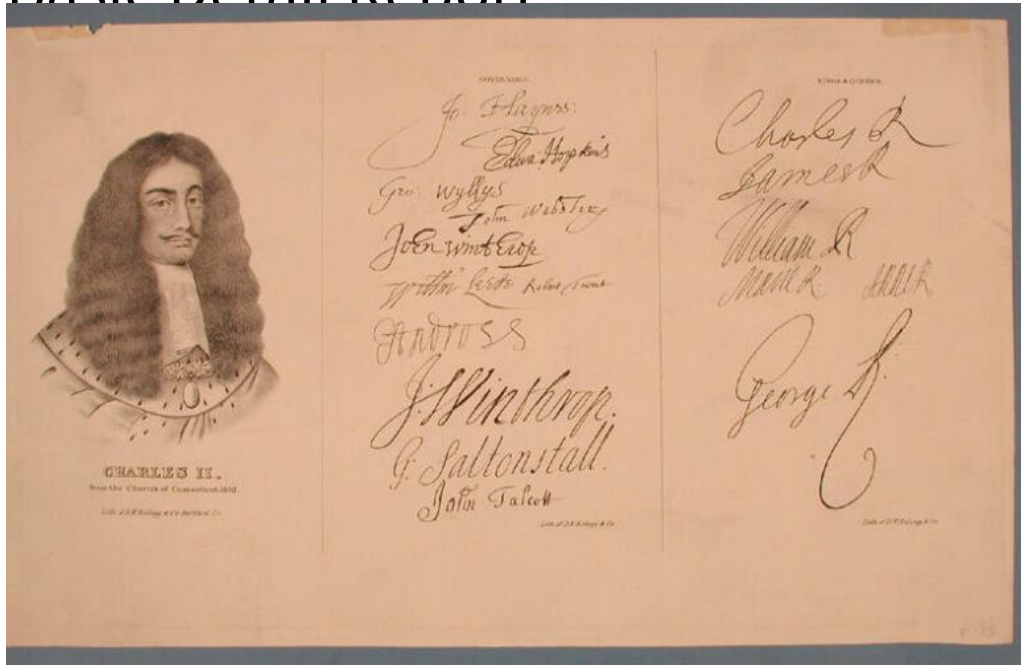 CHARLES II.
From the Charter of Connecticut, 1662.
Lith. of D.W. Kellogg & Co. Hartford, Ct.
GOVERNORS.
Jo: Haynes:
Edw: Hopkins
Geo: Wyllys
John Webster
John Winthrop
Willm Leete Robert Treat
E Andross
J. Winthrop.
G. Saltonstall.
John Talcott
Lith. of D.W. Kellogg & Co.
KINGS & QUEENS.
Charles R
James R
William R
Marie R ANNE R
George R.
Lith. of D.W. Kellogg & Co.